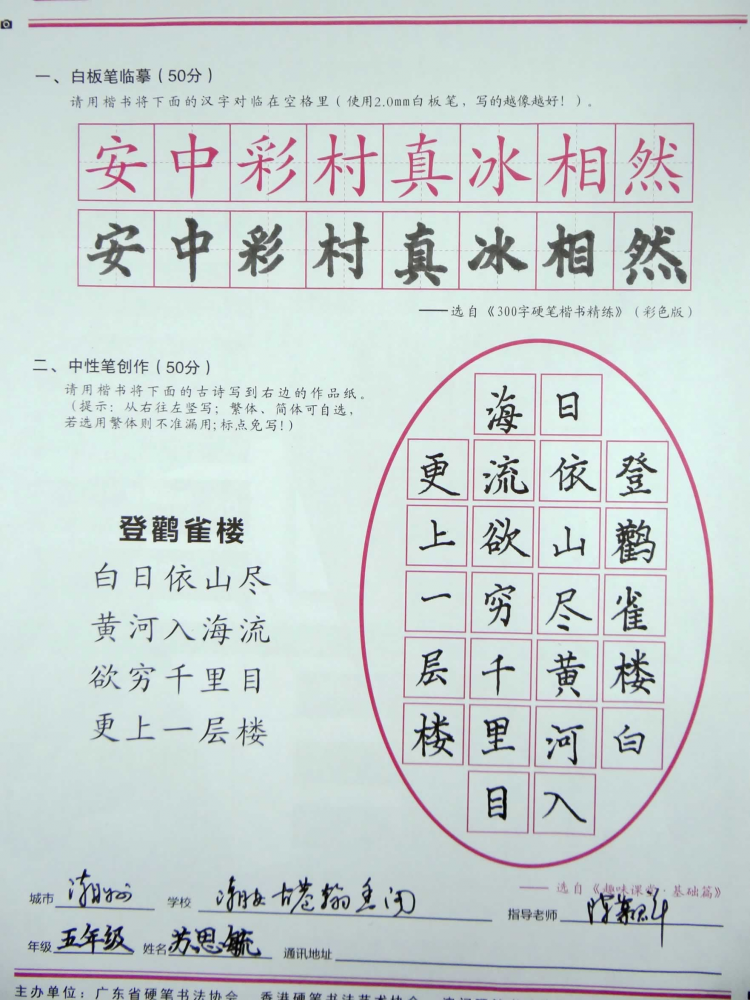 一、白板笔临摹（50分）
请用楷书将下面的汉字对临在空格里（使用2.0mm白板笔，写的越像越好！）。
安中彩村真冰相然
安中彩村真冰相然
——选自《300字硬笔楷书精练》（彩色版）
二、中性笔创作（50分）
请用楷书将下面的古诗写到右边的作品纸。
（提示：从右往左竖写；繁体、简体可自选，
若选用繁体则不准漏用；标点免写！）
登鹳雀楼
白日依山尽
黄河入海流
欲穷千里目
更上一层楼
登鹳雀楼白
日依山尽黄河入
海流欲穷千里目
更上一层楼
——选自《趣味课堂·基础篇》
城市 潮州 学校 指导老师
年级 五年级 姓名 苏思毓 通讯地址
主办单位：广东省硬笔书法协会 香港硬笔书法艺术协会